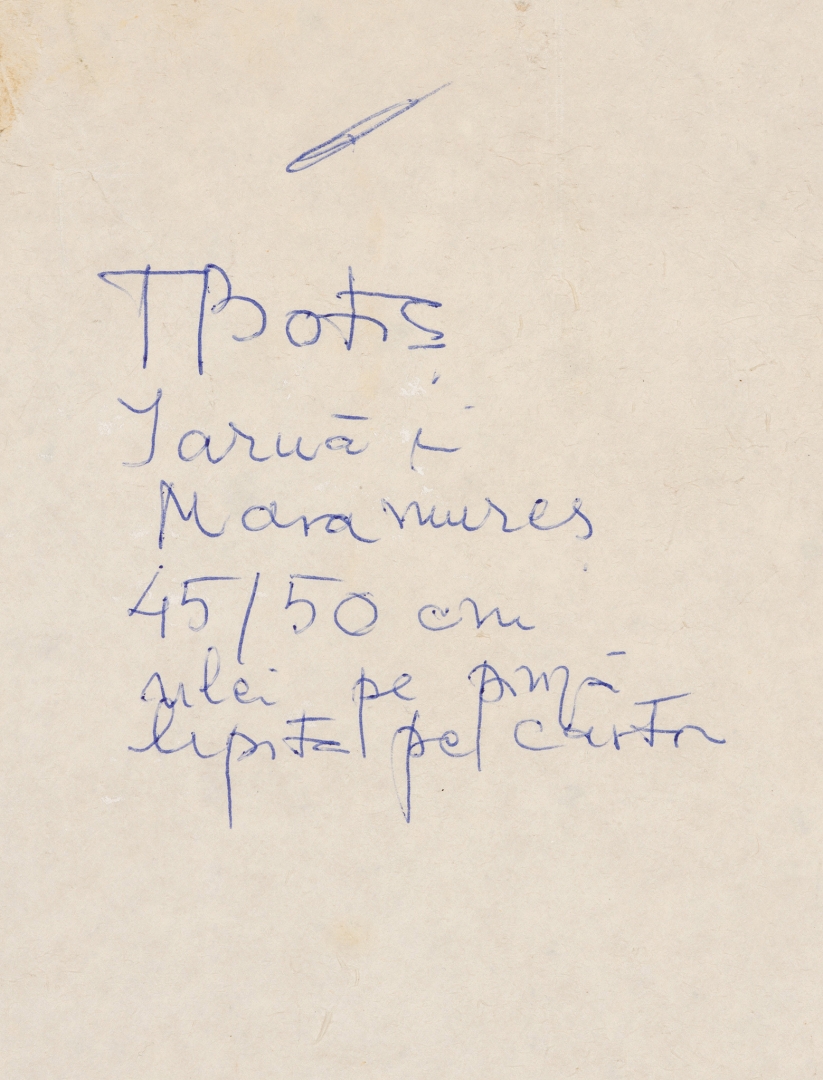 T Botiș
Iarnă în
Maramureș
45/50 cm
ulei pe pînză
lipită pe carton